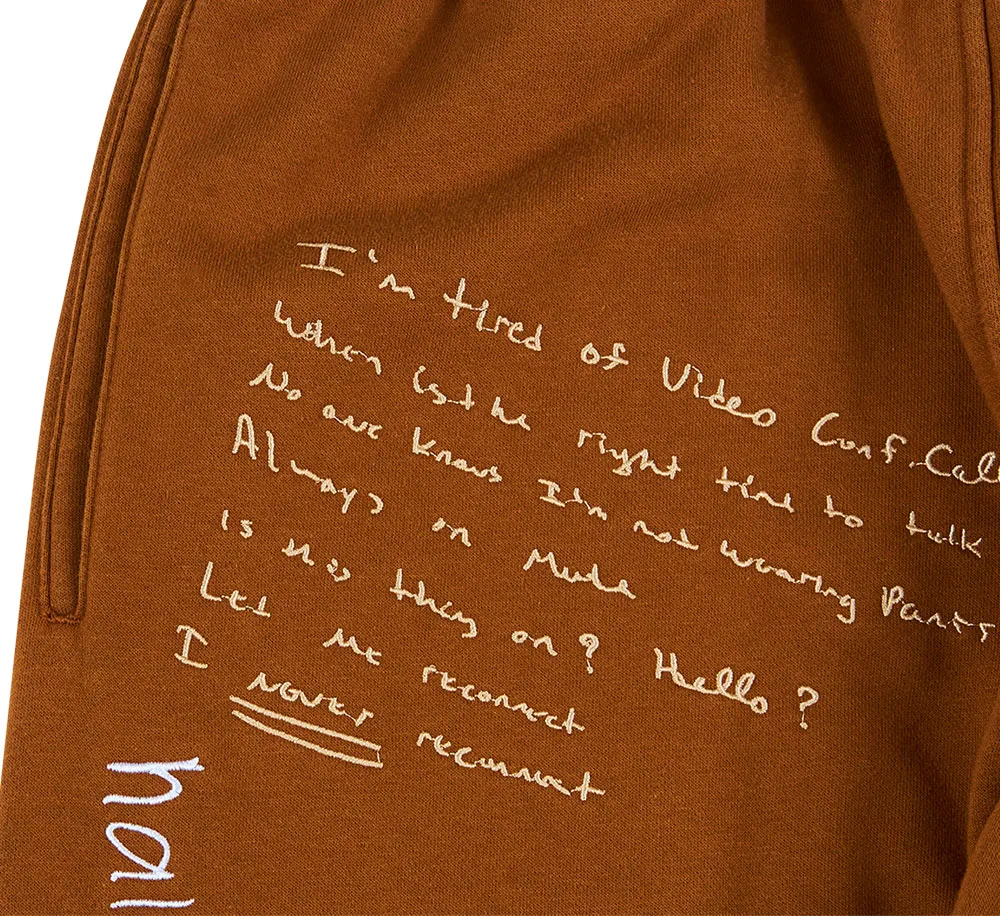 I'm tired of Video Conf. Call
When is the right time to talk
No one knows I'm not wearing Pants
Always on Mute
is this thing on? Hello?
Let me reconnect
I never reconnect
hal